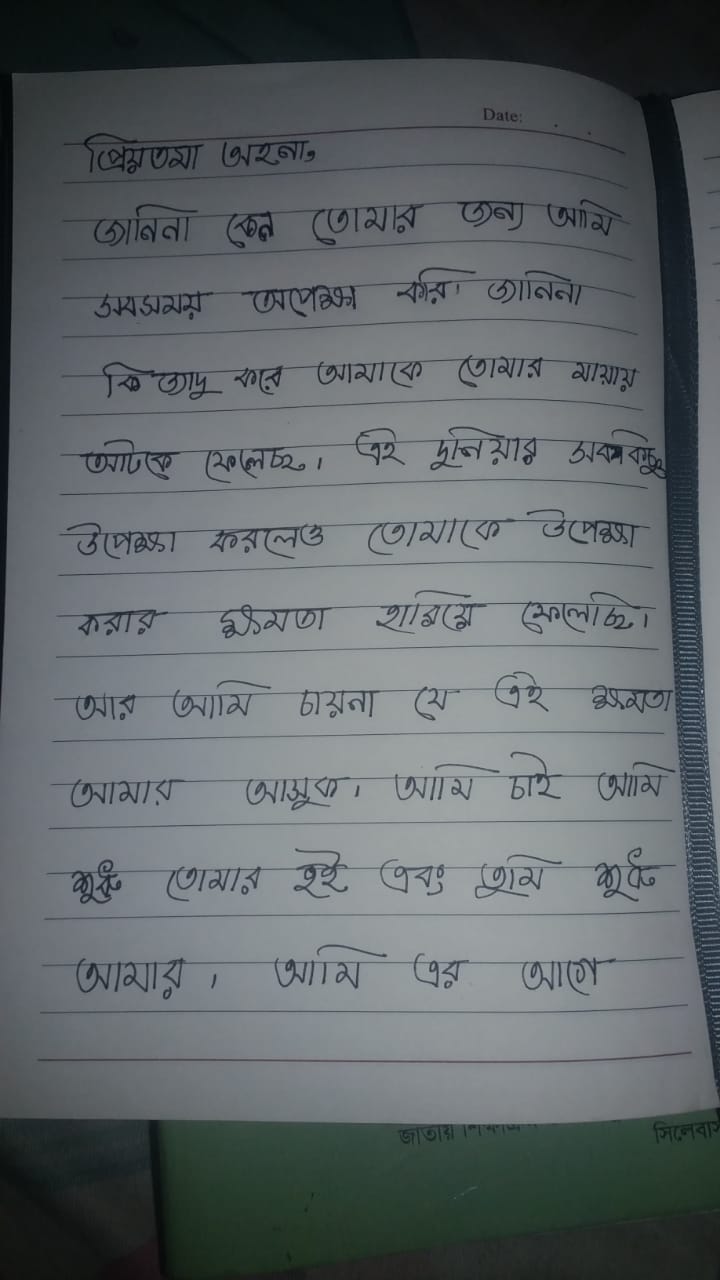 Date:
প্রিয়তমা অহনা,
জানিনা কেন তোমার জন্য আমি
সবসময় অপেক্ষা করি। জানিনা
কি জাদু করে আমাকে তোমার মায়ায়
আটকে ফেলেছ। এই দুনিয়ার সবকিছু
উপেক্ষা করলেও তোমাকে উপেক্ষা
করার ক্ষমতা হারিয়ে ফেলেছি।
আর আমি চায়না যে এই ক্ষমতা
আমার আসুক। আমি চাই আমি
শুধু তোমার হই এবং তুমি শুধু
আমার। আমি এর আগে
জাতীয়